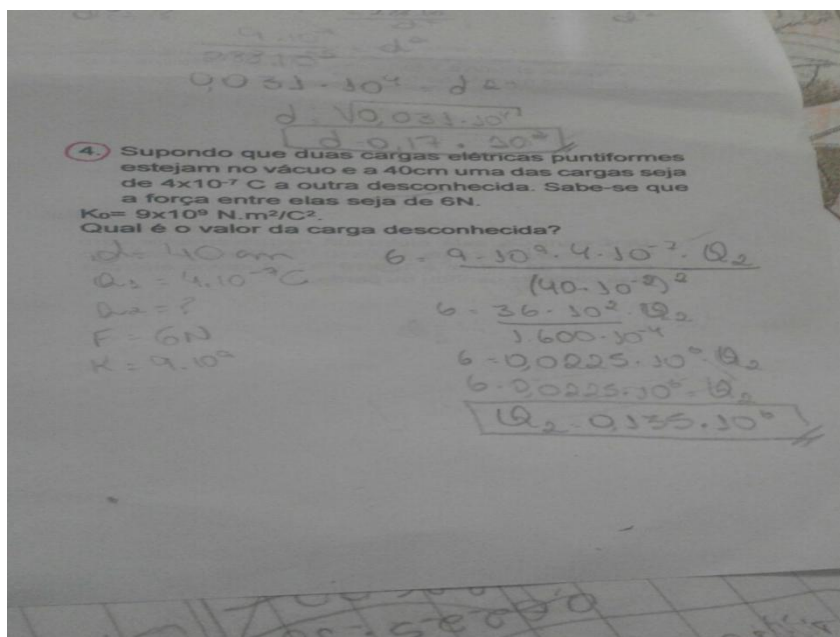 0,031 · 10⁴ = d²
d = √0,031 · 10⁴
d = 0,17 · 10²
4. Supondo que duas cargas elétricas puntiformes
estejam no vácuo e a 40cm uma das cargas seja
de 4x10⁻⁷ C a outra desconhecida. Sabe-se que
a força entre elas seja de 6N.
K₀= 9x10⁹ N.m²/C².
Qual é o valor da carga desconhecida?
d = 40 cm
Q₁ = 4.10⁻⁷C
Q₂ = ?
F = 6N
K = 9.10⁹
6 = 9 · 10⁹ · 4 · 10⁻⁷ · Q₂
(40 · 10⁻²)²
6 = 36 · 10² · Q₂
1.600 · 10⁻⁴
6 = 0,0225 · 10⁶ · Q₂
6 · 0,0225 · 10⁶ = Q₂
Q₂ = 0,135 · 10⁶